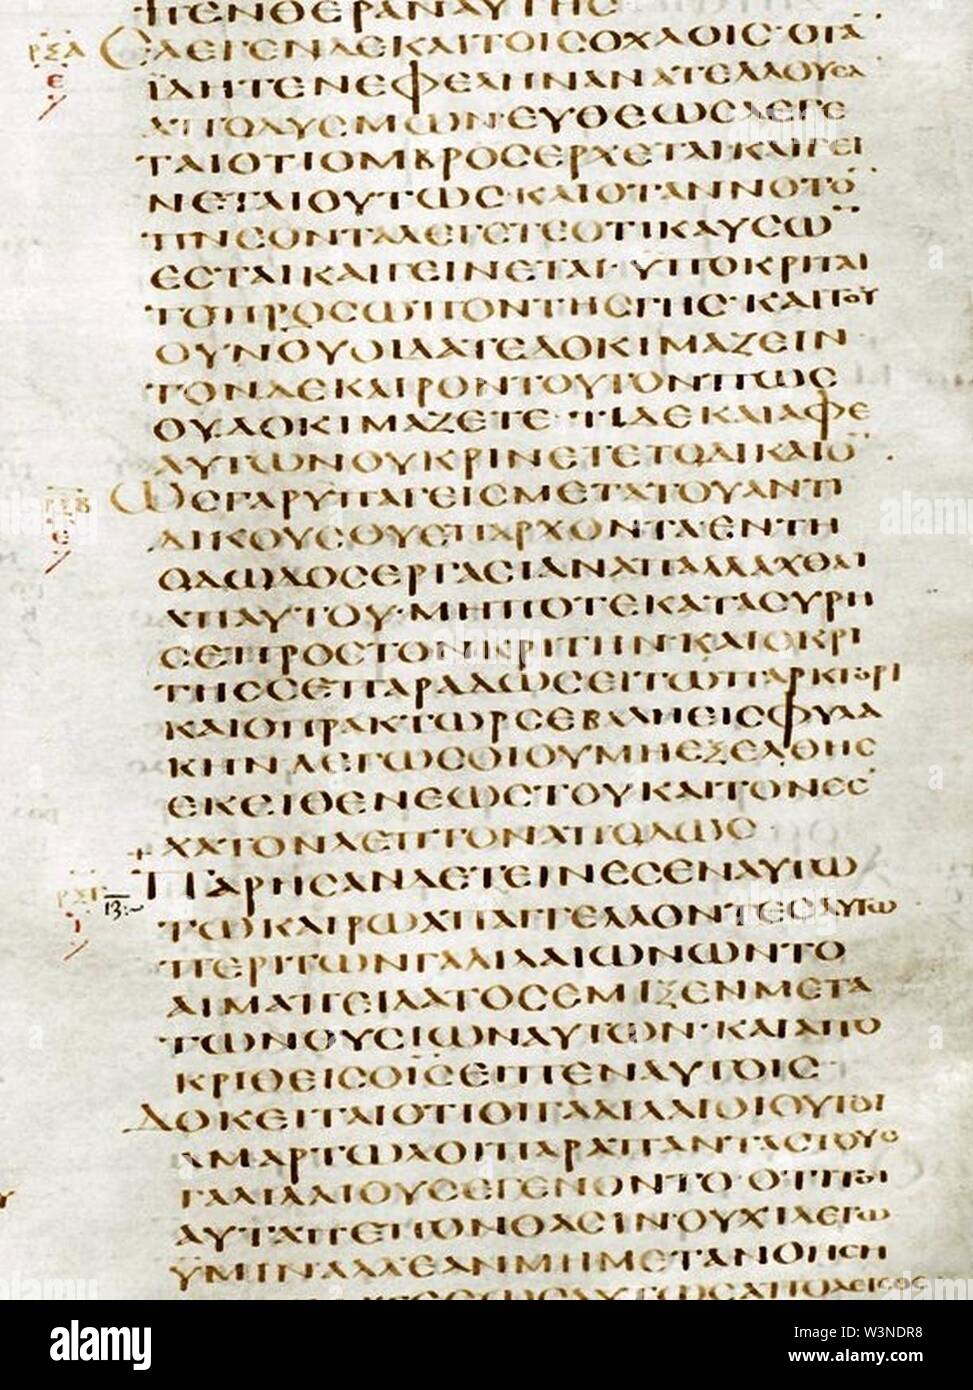 ΠΕΝΘΕΡΑΝΑΥΤΗC
ΕΛΕΓΕΝΔΕΚΑΙΤΟΙCΟΧΛΟΙC·ΟΤΑ
ΪΔΗΤΕΝΕΦΕΛΗΝΑΝΑΤΕΛΛΟΥCΑ
ΑΠΟΔΥCΜΩΝ·ΕΥΘΕΩCΛΕΓΕ
ΤΑΙΟΤΙΟΜΒΡΟCΕΡΧΕΤΑΙ·ΚΑΙΓΕΙ
ΝΕΤΑΙΟΥΤΩC·ΚΑΙΟΤΑΝΝΟΤΟ
ΠΝΕΟΝΤΑΛΕΓΕΤΕΟΤΙΚΑΥCΩ
ΕCΤΑΙΚΑΙΓΕΙΝΕΤΑΙ·ΫΠΟΚΡΙΤΑΙ
ΤΟΠΡΟCΩΠΟΝΤΗCΓΗC·ΚΑΙΤΟΥ
ΟΥΝΟΥΟΙΔΑΤΕΔΟΚΙΜΑΖΕΙΝ
ΤΟΝΔΕΚΑΙΡΟΝΤΟΥΤΟΝΠΩC
ΟΥΔΟΚΙΜΑΖΕΤΕ·ΤΙΔΕΚΑΙΑΦΕ
ΑΥΤΩΝΟΥΚΡΙΝΕΤΕΤΟΔΙΚΑΙΟ
ΩCΓΑΡΥΠΑΓΕΙCΜΕΤΑΤΟΥΑΝΤΙ
ΔΙΚΟΥCΟΥΕΠΑΡΧΟΝΤΑΕΝΤΗ
ΟΔΩΔΟCΕΡΓΑCΙΑΝΑΠΑΛΛΑΧΘΑΙ
ΑΠΑΥΤΟΥ·ΜΗΠΟΤΕΚΑΤΑCΥΡΗ
CΕΠΡΟCΤΟΝΚΡΙΤΗΝ·ΚΑΙΟΚΡΙ
ΤΗCCΕΠΑΡΑΔΩCΕΙΤΩΠΡΑΚΤΟΡΙ
ΚΑΙΟΠΡΑΚΤΩΡCΕΒΑΛΗΕΙCΦΥΛΑ
ΚΗΝΛΕΓΩCΟΙΟΥΜΗΕΞΕΛΘΗC
ΕΚΕΙΘΕΝΕΩCΤΟΥΚΑΙΤΟΝΕC
ΧΑΤΟΝΛΕΠΤΟΝΑΠΟΔΩC
ΠΑΡΗCΑΝΔΕΤΕΙΝΕCΕΝΑΥΤΩ
ΤΩΚΑΙΡΩΑΠΑΓΓΕΛΛΟΝΤΕCΑΥΤΩ
ΠΕΡΙΤΩΝΓΑΛΙΛΑΙΩΝΩΝΤΟ
ΑΙΜΑΠΕΙΛΑΤΟCΕΜΙΞΕΝΜΕΤΑ
ΤΩΝΘΥCΙΩΝΑΥΤΩΝ·ΚΑΙΑΠΟ
ΚΡΙΘΕΙCΟΙCΕΙΠΕΝΑΥΤΟΙC
ΔΟΚΕΙΤΑΙΟΤΙΟΙΓΑΛΙΛΑΙΟΙΟΥΤΟΙ
ΑΜΑΡΤΩΛΟΙΠΑΡΑΠΑΝΤΑCΤΟΥC
ΓΑΛΙΛΑΙΟΥCΕΓΕΝΟΝΤΟ·ΟΤΙΤΟΙ
ΑΥΤΑΠΕΠΟΝΘΑCΙΝ·ΟΥΧΙΛΕΓΩ
ΫΜΙΝΑΛΛΕΑΝΜΗΜΕΤΑΝΟΗCΗ
alamy
Image ID: W3NDR8
www.alamy.com